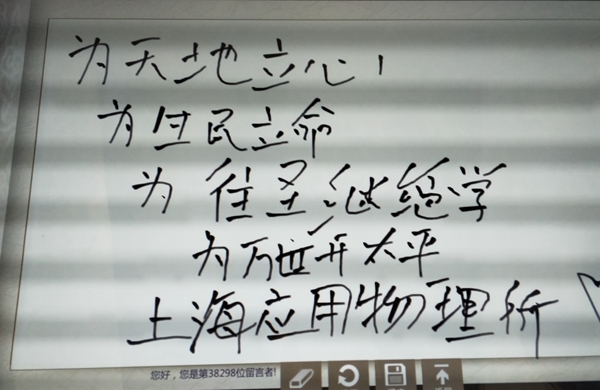 为天地立心
为生民立命
为往圣继绝学
为万世开太平
上海应用物理所
您好，您是第38298位留言者!